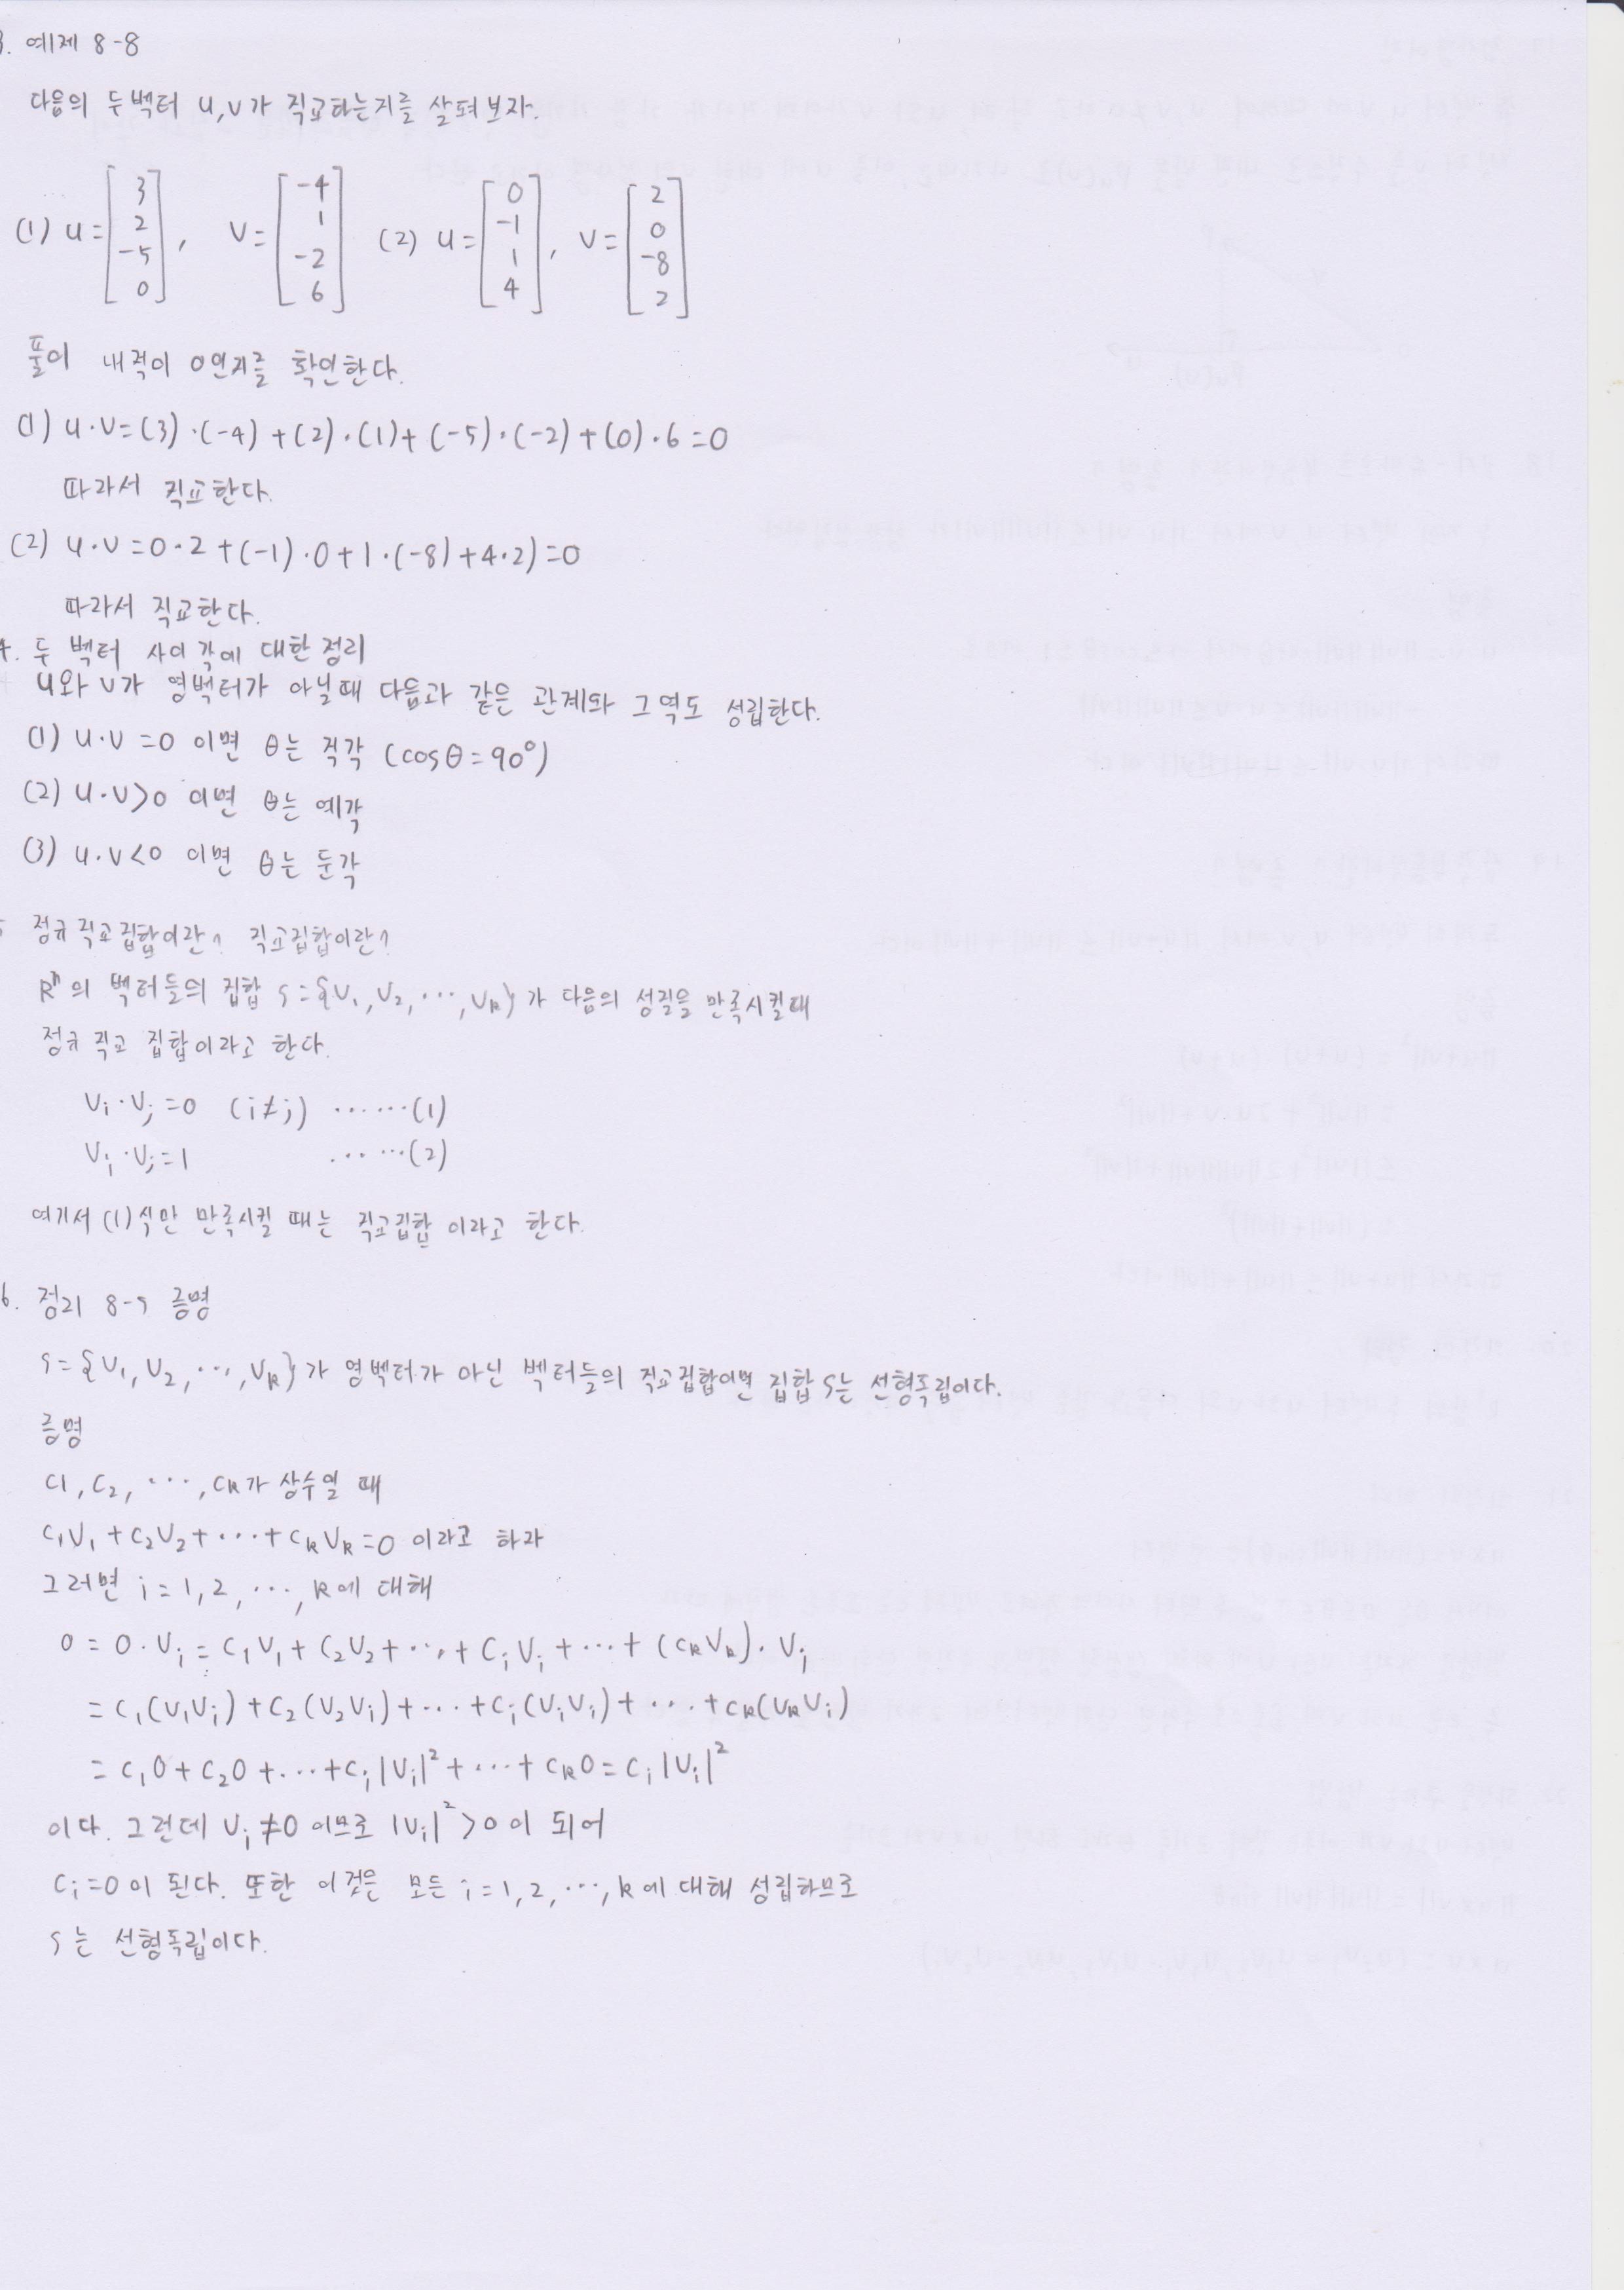 3. 예제 8-8
다음의 두 벡터 u, v가 직교하는지를 살펴보자.
(1) u = [3 2 -5 0], v = [-4 1 -2 6] (2) u = [0 -1 1 4], v = [2 0 -8 2]
풀이 내적이 0인지를 확인한다.
(1) u·v=(3)·(-4)+(2)·(1)+(-5)·(-2)+(0)·6=0
따라서 직교한다.
(2) u·v=0·2+(-1)·0+1·(-8)+4·2)=0
따라서 직교한다.
4. 두 벡터 사이 각에 대한 정리
u와 v가 영벡터가 아닐때 다음과 같은 관계와 그 역도 성립한다.
(1) u·v=0 이면 θ는 직각 (cosθ=90°)
(2) u·v>0 이면 θ는 예각
(3) u·v<0 이면 θ는 둔각
5 정규직교집합이란? 직교집합이란?
Rⁿ의 벡터들의 집합 S={v₁, v₂, ···, vₖ}가 다음의 성질을 만족시킬때
정규 직교 집합이라고 한다.
vᵢ·vⱼ=0 (i≠j) ······(1)
vᵢ·vᵢ=1 ······(2)
여기서 (1)식만 만족시킬 때는 직교집합 이라고 한다.
6. 정리 8-5 증명
S={v₁, v₂, ···, vₖ}가 영벡터가 아닌 벡터들의 직교집합이면 집합 S는 선형독립이다.
증명
c1, c₂, ···, cₖ가 상수일 때
c₁v₁+c₂v₂+···+cₖvₖ=0 이라고 하라
그러면 i=1,2, ···, k에 대해
0=0·vᵢ=c₁v₁+c₂v₂+···+cᵢvᵢ+···+(cₖvₖ)·vᵢ
=c₁(v₁vᵢ)+c₂(v₂vᵢ)+···+cᵢ(vᵢvᵢ)+···+cₖ(vₖvᵢ)
=c₁0+c₂0+···+cᵢ|vᵢ|²+···+cₖ0=cᵢ|vᵢ|²
이다. 그런데 vᵢ≠0 이므로 |vᵢ|²>0이 되어
cᵢ=0이 된다. 또한 이것은 모든 i=1,2, ···, k에 대해 성립하므로
S는 선형독립이다.